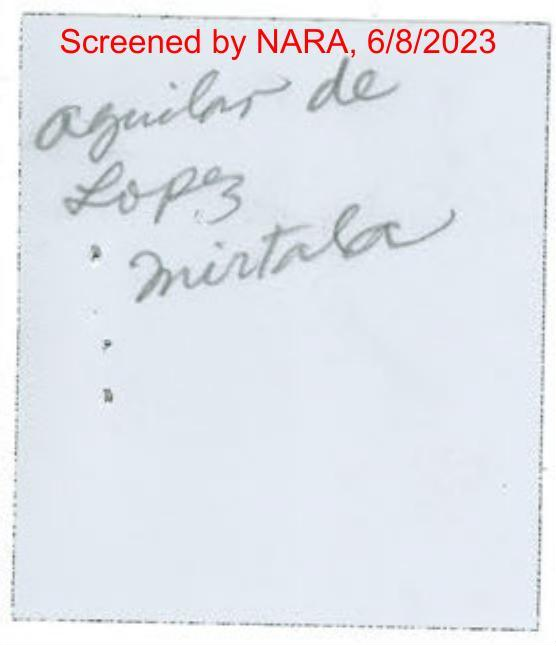 Screened by NARA, 6/8/2023
Aguilar de
Lopez
Mirtala